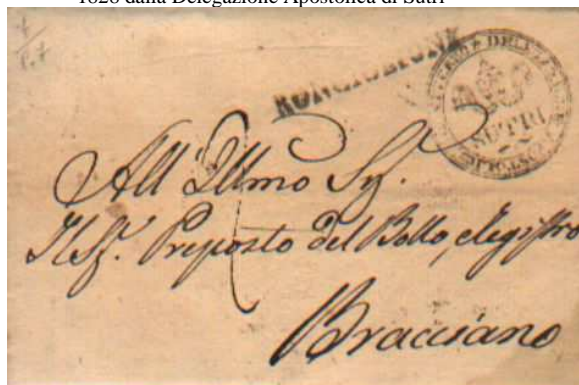 1828 dalla Delegazione Apostolica di Sutri
RONCIGLIONE
SUTRI
All' Illmo Sig.
Il Sig. Preposto del Bollo, e Registro
Bracciano